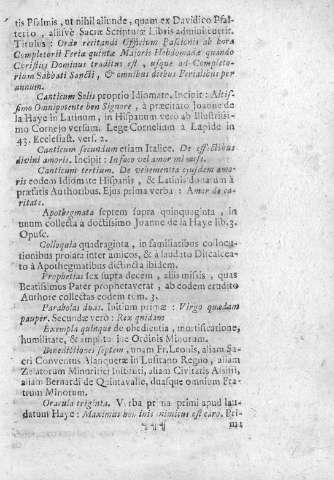 tis Psalmis, ut nihil aliunde, quam ex Davidico Psal-
terio, alisive Sacræ Scripturæ Libris admisceretur.
Titulus: Ordo recitandi Officium Passionis ab hora
Completorii Feriæ quintæ Majoris Hebdomadæ quando
Christus Dominus traditus est, usque ad Completo-
rium Sabbati Sancti, & omnibus diebus Ferialibus per
annum.
Canticum Solis proprio Idiomate. Incipit: Altis-
simo Omnipotente bon Signore, à præcitato Joanne de
la Haye in Latinum, in Hispanum vero ab Illustrissi-
mo Cornejo versum. Lege Cornelium à Lapide in
43. Ecclesiast. vers. 2.
Canticum secundum etiam Italice. De effectibus
divini amoris. Incipit: In foco vel amor mi mise.
Canticum tertium. De vehementia ejusdem amo-
ris eodem Idiomate Hispanis, & Latinis donatum à
præfatis Authoribus. Ejus prima verba: Amor de ca-
ritate.
Apothegmata septem supra quinquaginta, in
unum collecta à doctissimo Joanne de la Haye lib. 3.
Opusc.
Colloquia quadraginta, in familiaribus collocu-
tionibus prolata inter amicos, & à laudato Discalcea-
to à Apothegmatibus distincta ibidem.
Prophetias sex supra decem, aliis missis, quas
Beatissimus Pater prophetaverat, ab eodem erudito
Authore collectas eodem tom. 3.
Parabolas duas. Initium primæ: Virgo quædam
pauper. Secundæ verò: Rex quidam
Exempla quinque de obedientia, mortificatione,
humilitate, & amplitudine Ordinis Minorum.
Benedictiones septem, unam Fr. Leonis, aliam Sa-
cri Conventus Alanqueræ in Lusitano Regio, aliam
Zelatorum Minoritici Instituti, aliam Civitatis Assisii,
aliam Bernardi de Quintavalle, duasque omnium Fra-
trum Minorum.
Oracula triginta. Verba prima primi apud lau-
datum Haye: Maximus hominis inimicus est caro. Pri-
¶¶¶ mi